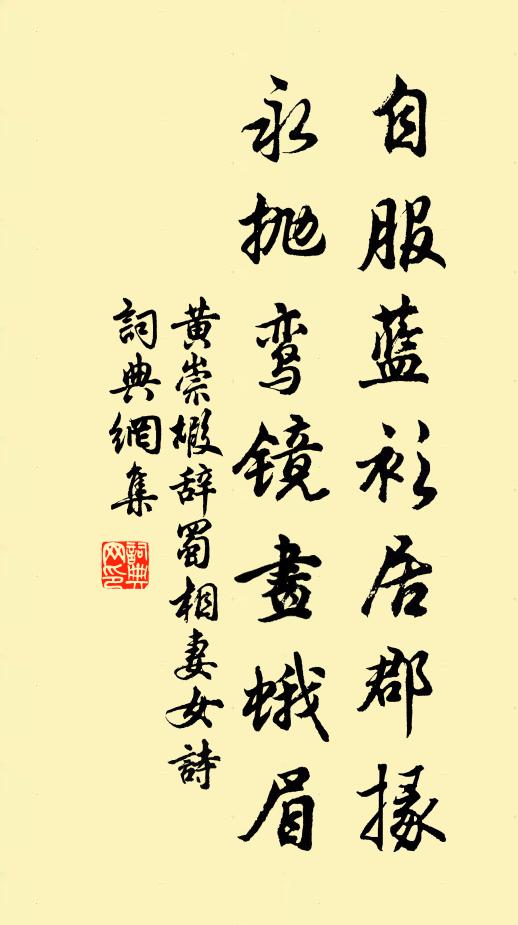 自服藍衫居郡掾
永抛鸾镜畫蛾眉
黄崇嘏辞蜀相妻女詩
詞典網集
詞典网印